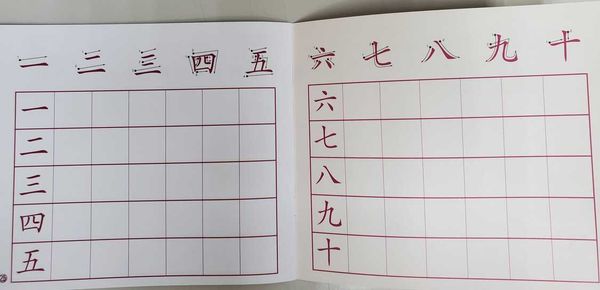 一 二 三 四 五
一
二
三
四
五
六 七 八 九 十
六
七
八
九
十